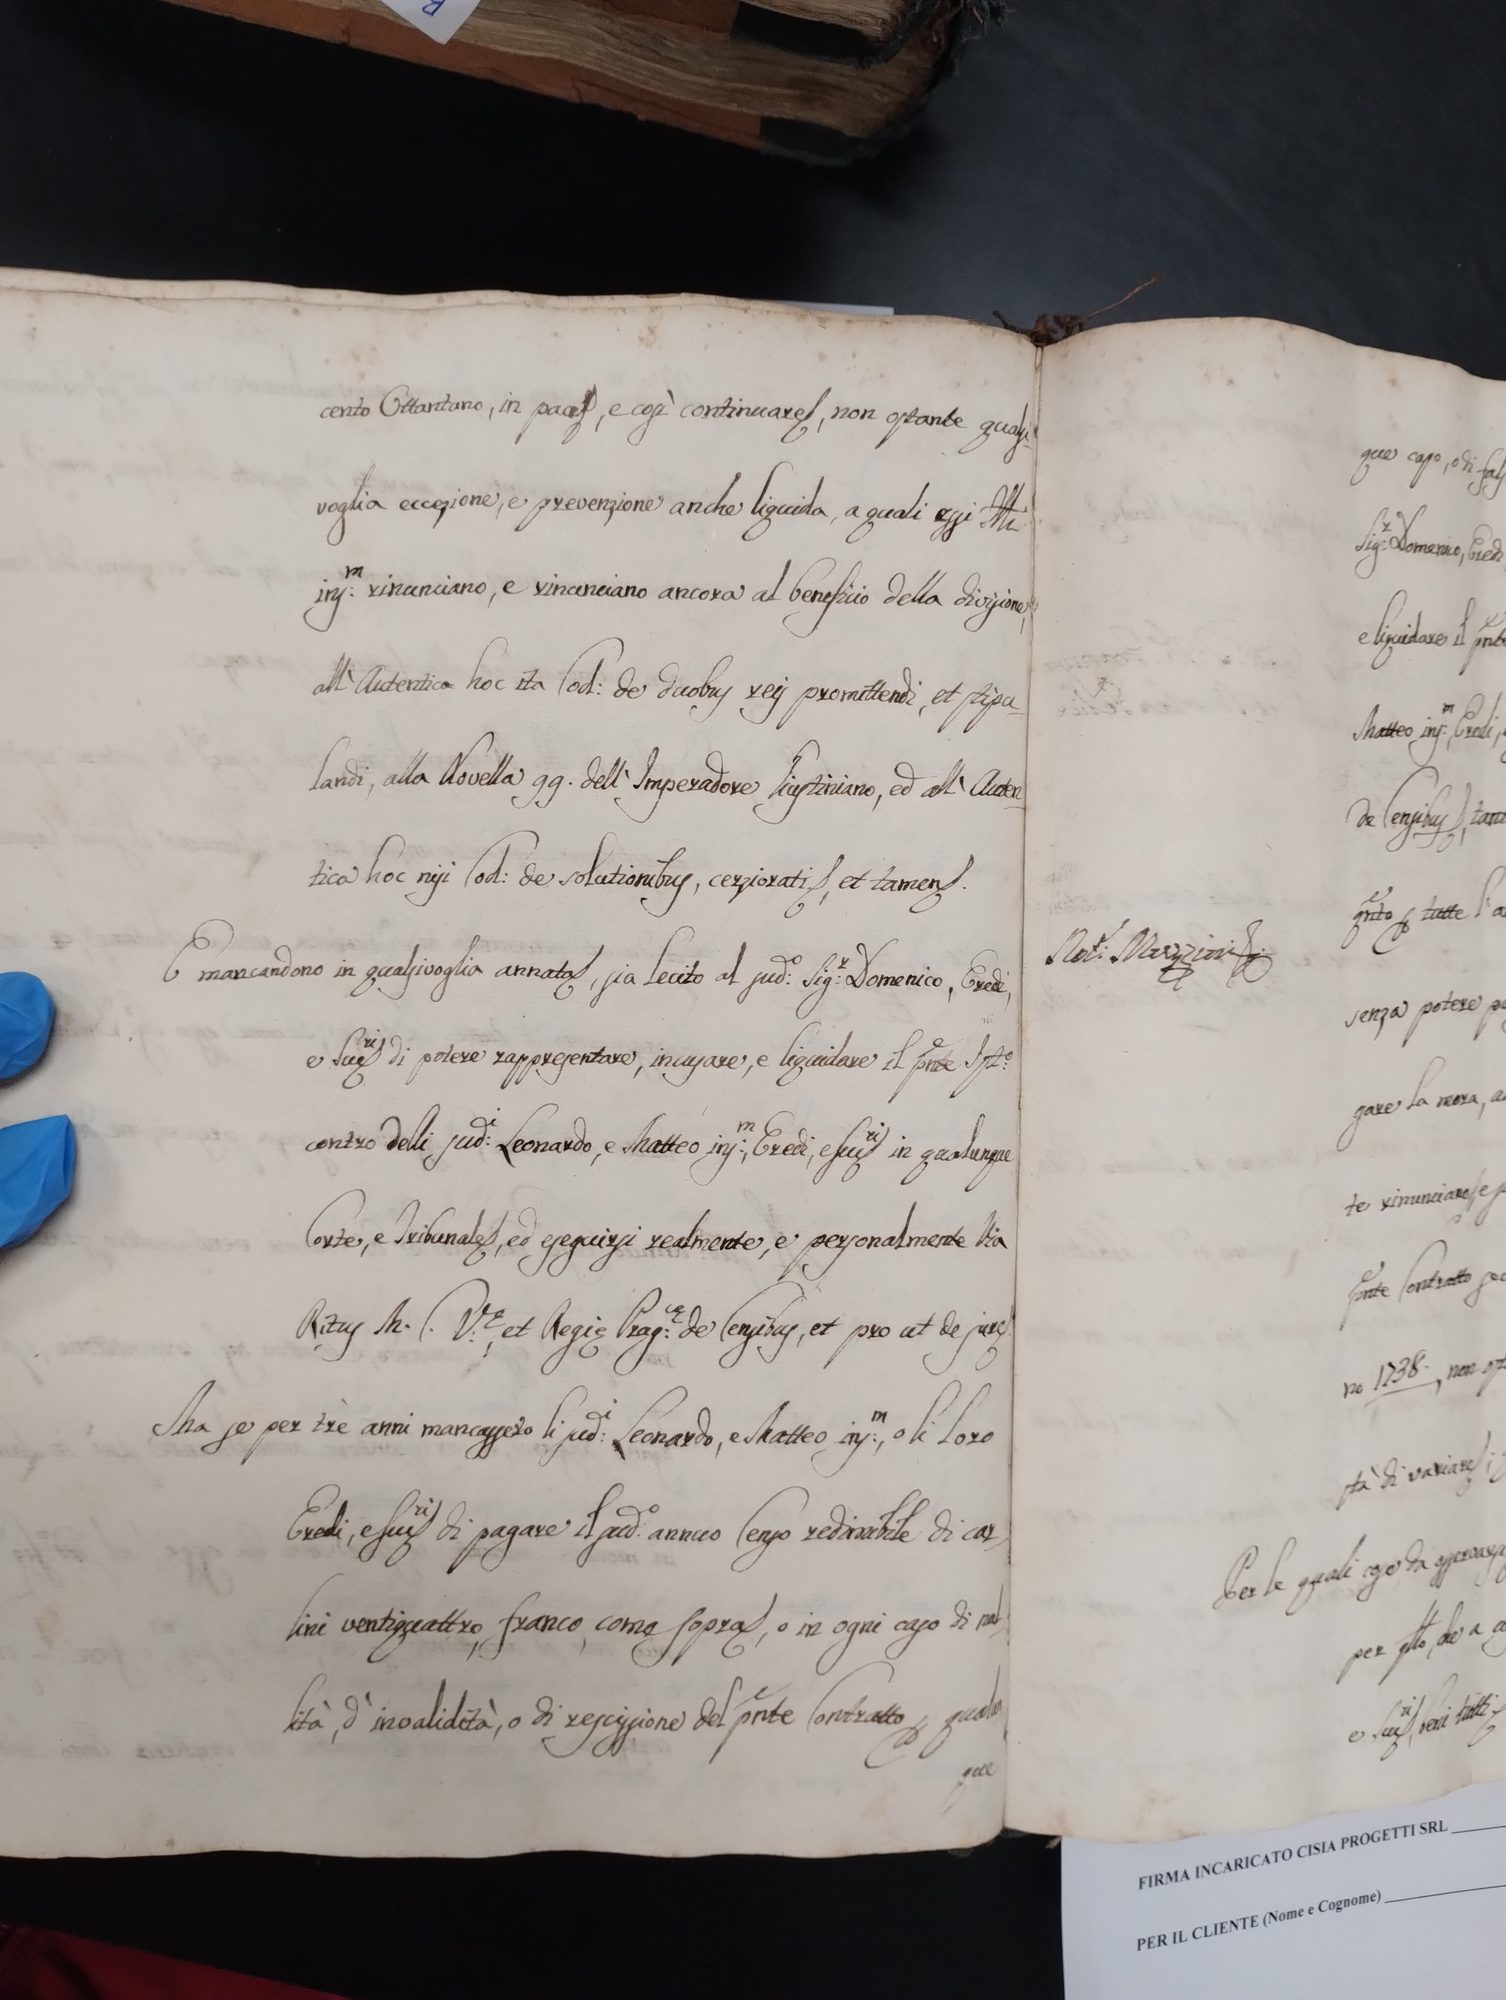 cento Ottantuno, in pace, e così continuare, non ostante qualsi-
voglia eccezione, e prevenzione anche liquida, a quali essi
ins:m rinunciano, e rinunciano ancora al beneficio della divisione,
all'Autentica hoc ita Cod: de duobus reis promittendi, et stipu-
landi, alla Novella 99. dell'Imperadore Giustiniano, ed all'Auten-
tica hoc nisi Cod: de solutionibus, cerziorati, et tamen.
E mancandono in qualsivoglia annata, sia lecito al sud:o Sig:r Domenico, Eredi,
e Succ:ri di potere rappresentare, incusare, e liquidare il pnte Ist:o
contro delli sud:i Leonardo, e Matteo ins:m, Eredi, e Succ:ri in qualunque
Corte, e Tribunale, ed eseguirsi realmente, e personalmente Via
Ritus M. C. V:e, et Regie Prag:ce de Censibus, et pro ut de jure.
Ma se per trè anni mancassero li sud:i Leonardo, e Matteo ins:m, o li loro
Eredi, e Succ:ri di pagare il sud:o annuo Censo redimibile di car-
lini ventiquattro, franco come sopra, o in ogni caso di nul-
lità, d'invalidità, o di rescissione del pnte Contratto qualun
que
Not:r
que capo, o di
Sig:r Domenico, Eredi
e liquidare il pnte
Matteo ins:m, Eredi,
de Censibus, tant
tutte l'a
senza potere
gare la mora,
te rinunciare, e
pnte Contratto
no 1738., non
stà di variare;
Per le quali cose da osservarsi
per
e Succ:ri, beni tutti
FIRMA INCARICATO CISIA PROGETTI SRL
PER IL CLIENTE (Nome e Cognome)